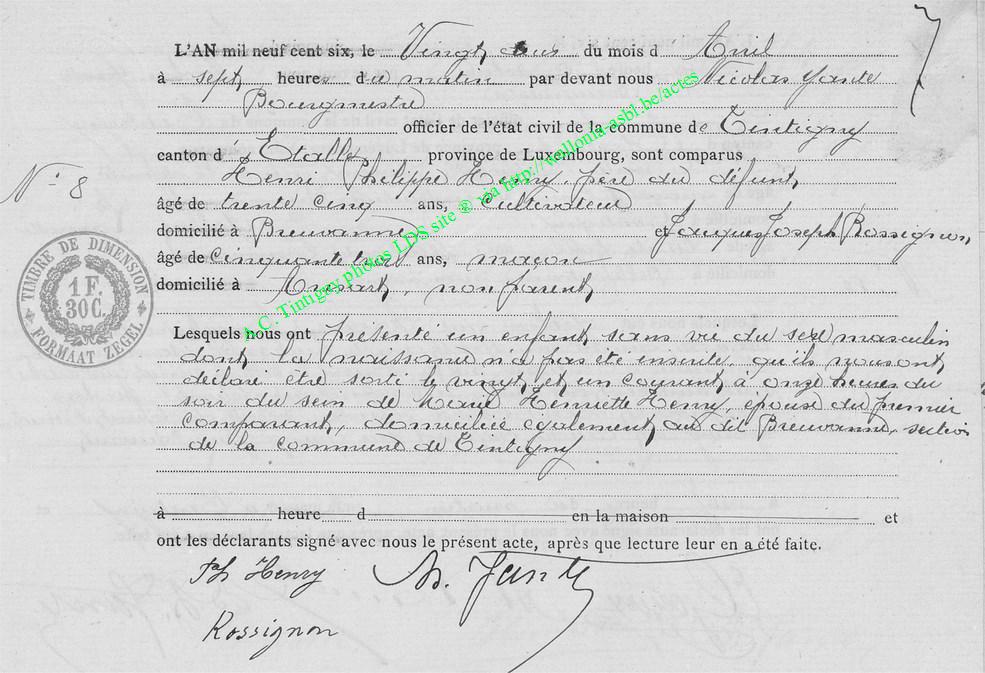 L'AN mil neuf cent six, le Vingt deux du mois d Avril
à sept heures du matin par devant nous Nicolas Yante
Bourgmestre
officier de l'état civil de la commune de Tintigny
canton d Etalle province de Luxembourg, sont comparus
Henri Philippe Henry, père du défunt,
N° 8
âgé de trente cinq ans, Cultivateur
domicilié à Breuvanne et Jacques Joseph Rossignon,
âgé de cinquante trois ans, maçon
domicilié à Ansart, non parent,
TIMBRE DE DIMENSION
1 F.
30 C.
FORMAAT ZEGEL
Lesquels nous ont présenté un enfant sans vie du sexe masculin
dont la naissance n'a pas été inscrite, qu'ils nous ont
déclaré être sorti le vingt et un courant à onze heures du
soir du sein de Marie Henriette Henry, épouse du premier
comparant, domiciliée également au dit Breuvanne, section
de la commune de Tintigny
à heure d en la maison et
ont les déclarants signé avec nous le présent acte, après que lecture leur en a été faite.
Ph Henry N. Yante
Rossignon
A.C. Tintigny photos LDS site ® via http://wallonia-asbl.be/actes